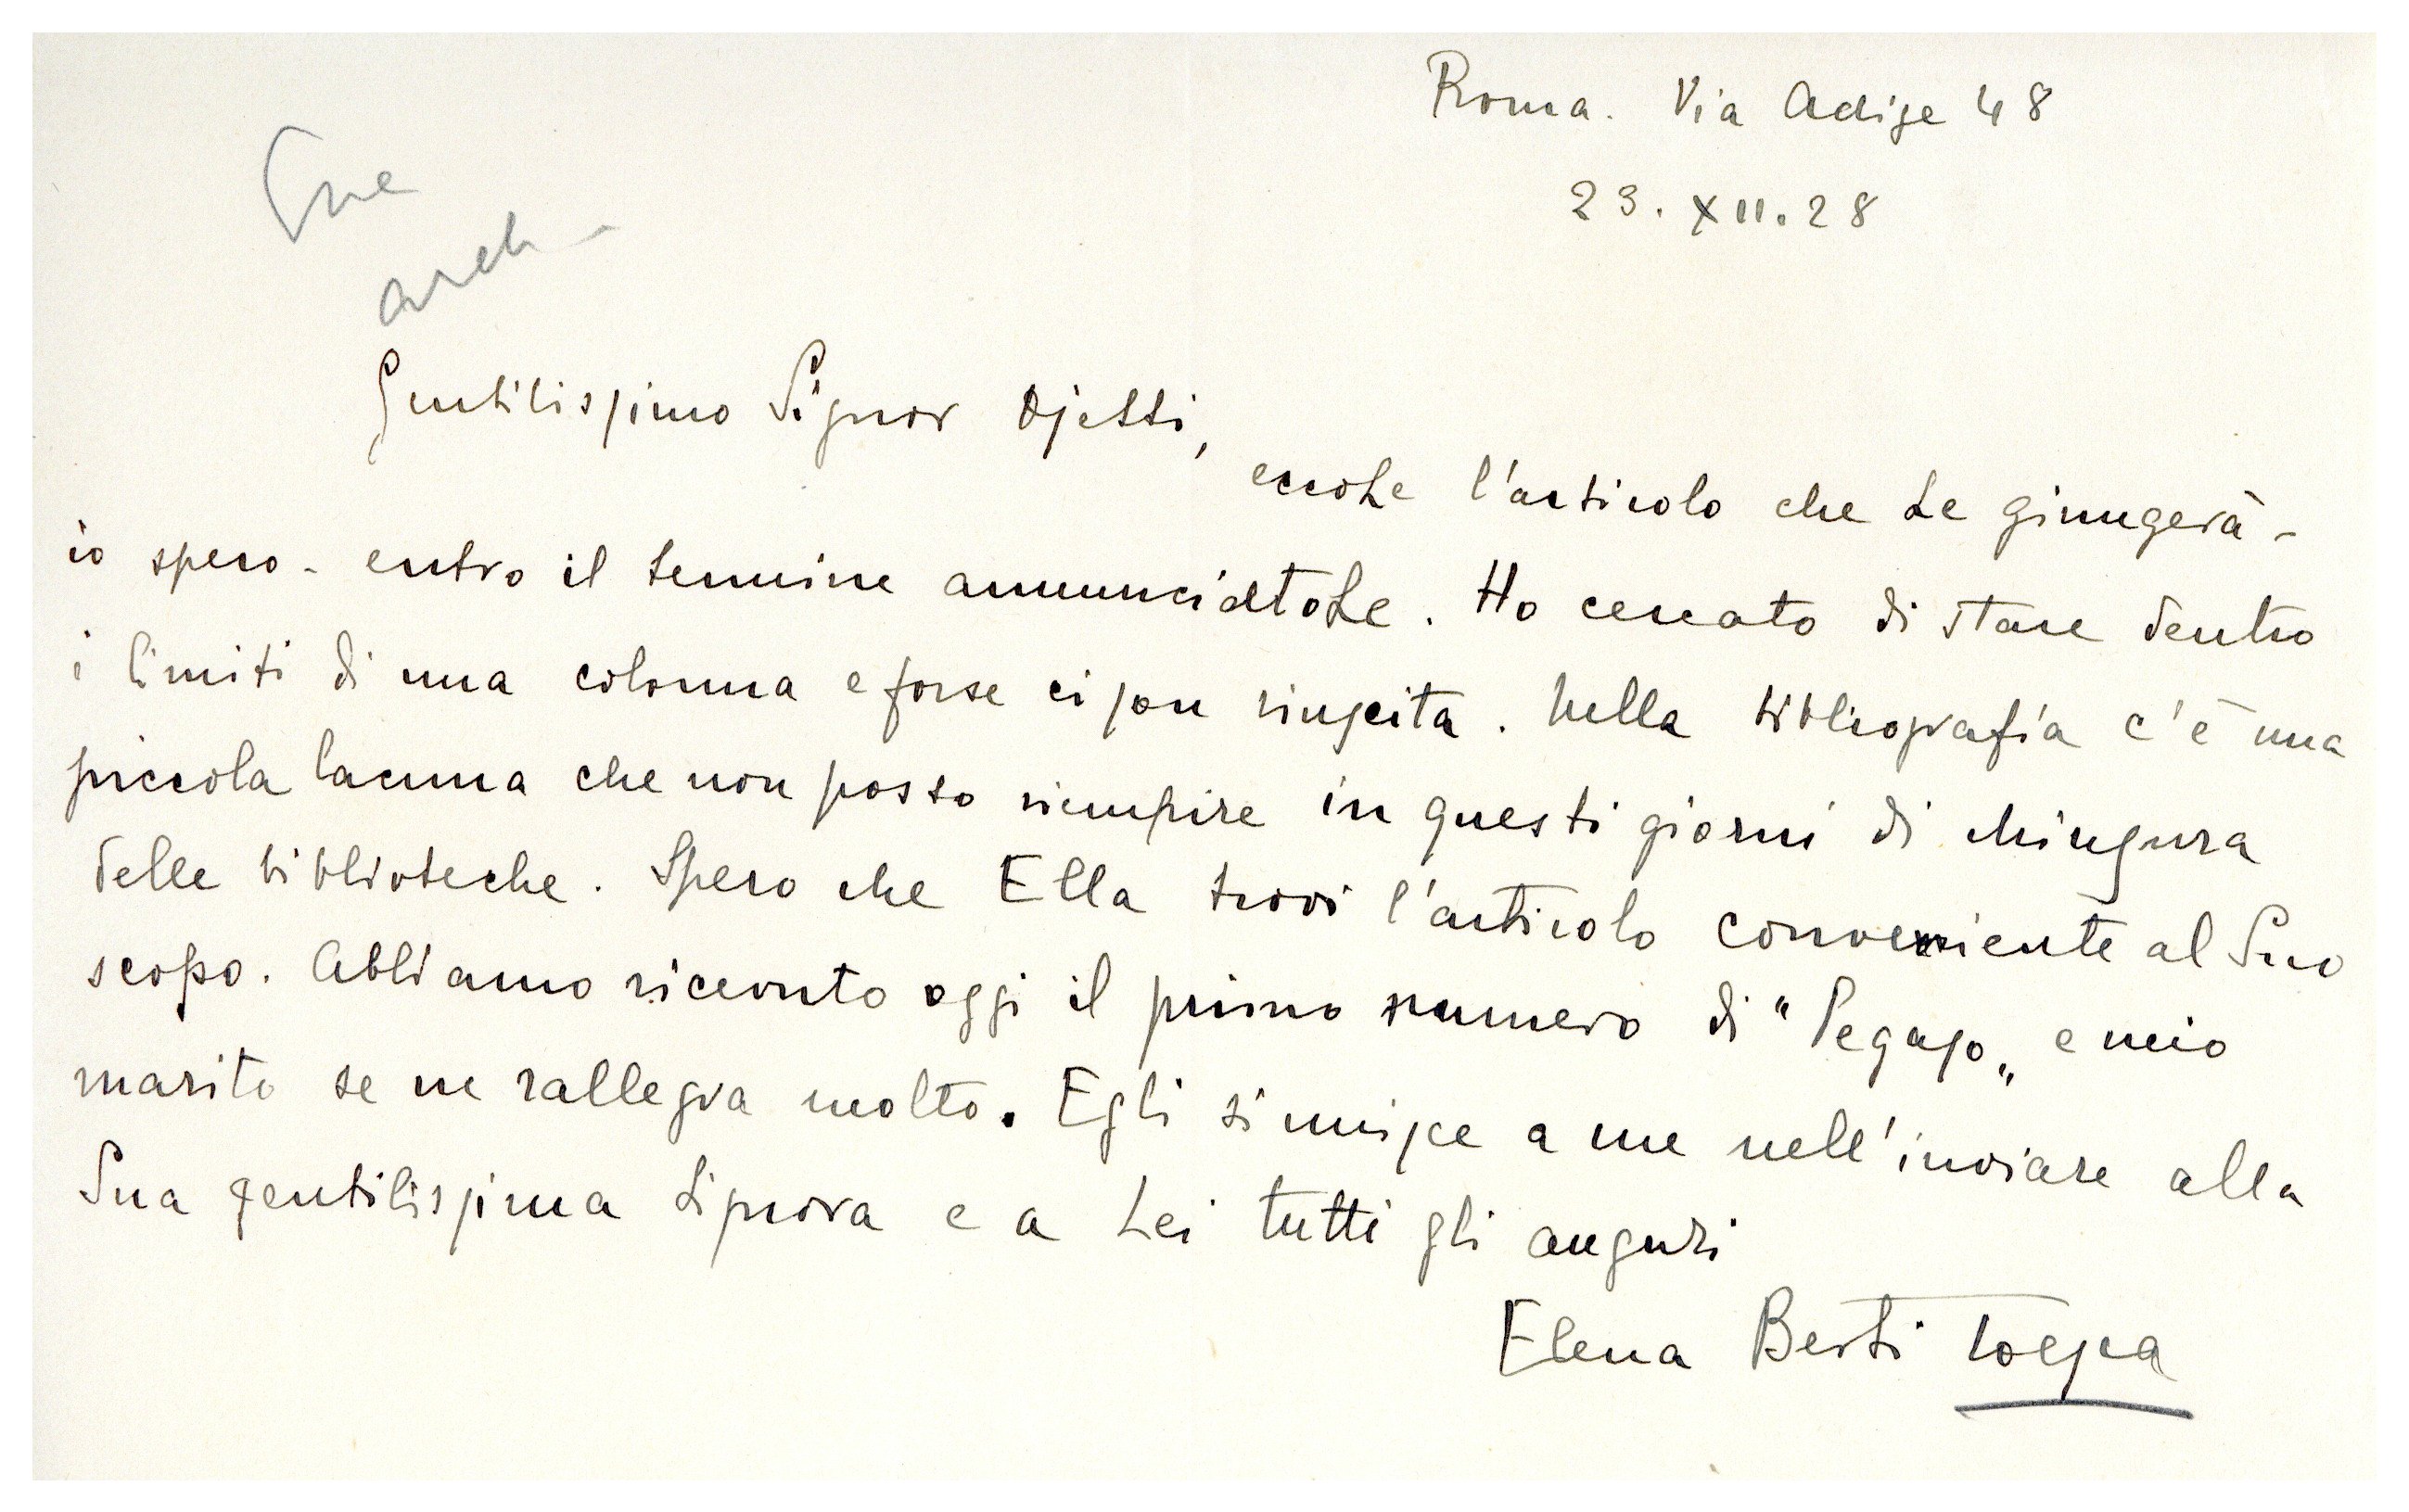 Roma. Via Adige 48
23.XII.28
arch
Gentilissimo Signor Ojetti,
eccoLe l'articolo che Le giungerà -
io spero - entro il termine annunciatoLe. Ho cercato di stare dentro
i limiti di una colonna e forse ci son riuscita. Nella bibliografia c'è una
piccola lacuna che non posso riempire in questi giorni di chiusura
delle biblioteche. Spero che Ella trovi l'articolo conveniente al Suo
scopo. Abbiamo ricevuto oggi il primo numero di "Pegaso" e mio
marito se ne rallegra molto. Egli si unisce a me nell'inviare alla
Sua gentilissima Signora e a Lei tutti gli auguri
Elena Berti Toesca